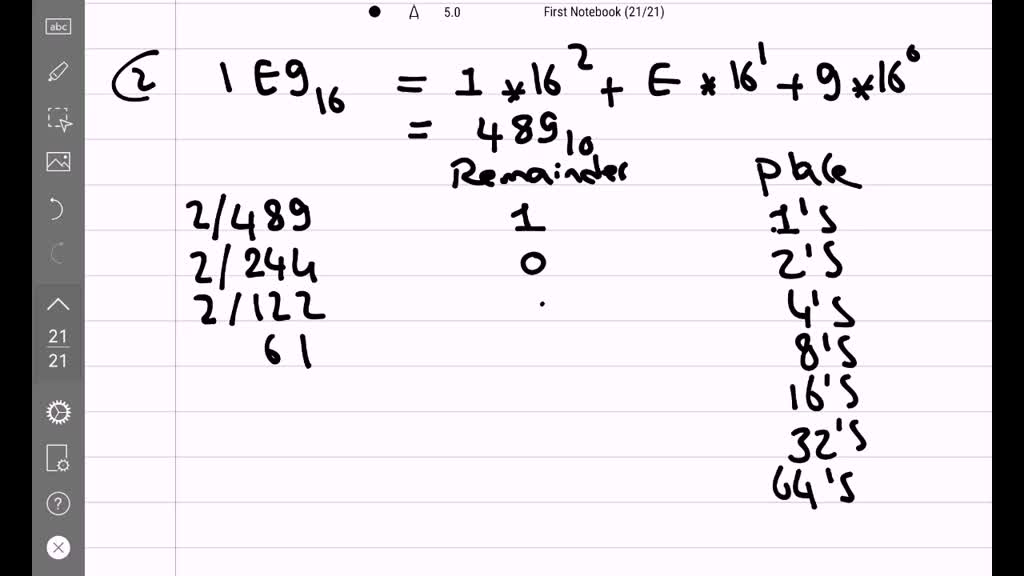 abc
A 5.0 First Notebook (21/21)
2 1E9₁₆ = 1 * 16² + E * 16¹ + 9 * 16⁰
= 489₁₀
Remainder Place
2/489 1 1's
2/244 0 2's
2/122 . 4's
61 8's
16's
32's
64's
21
21
?